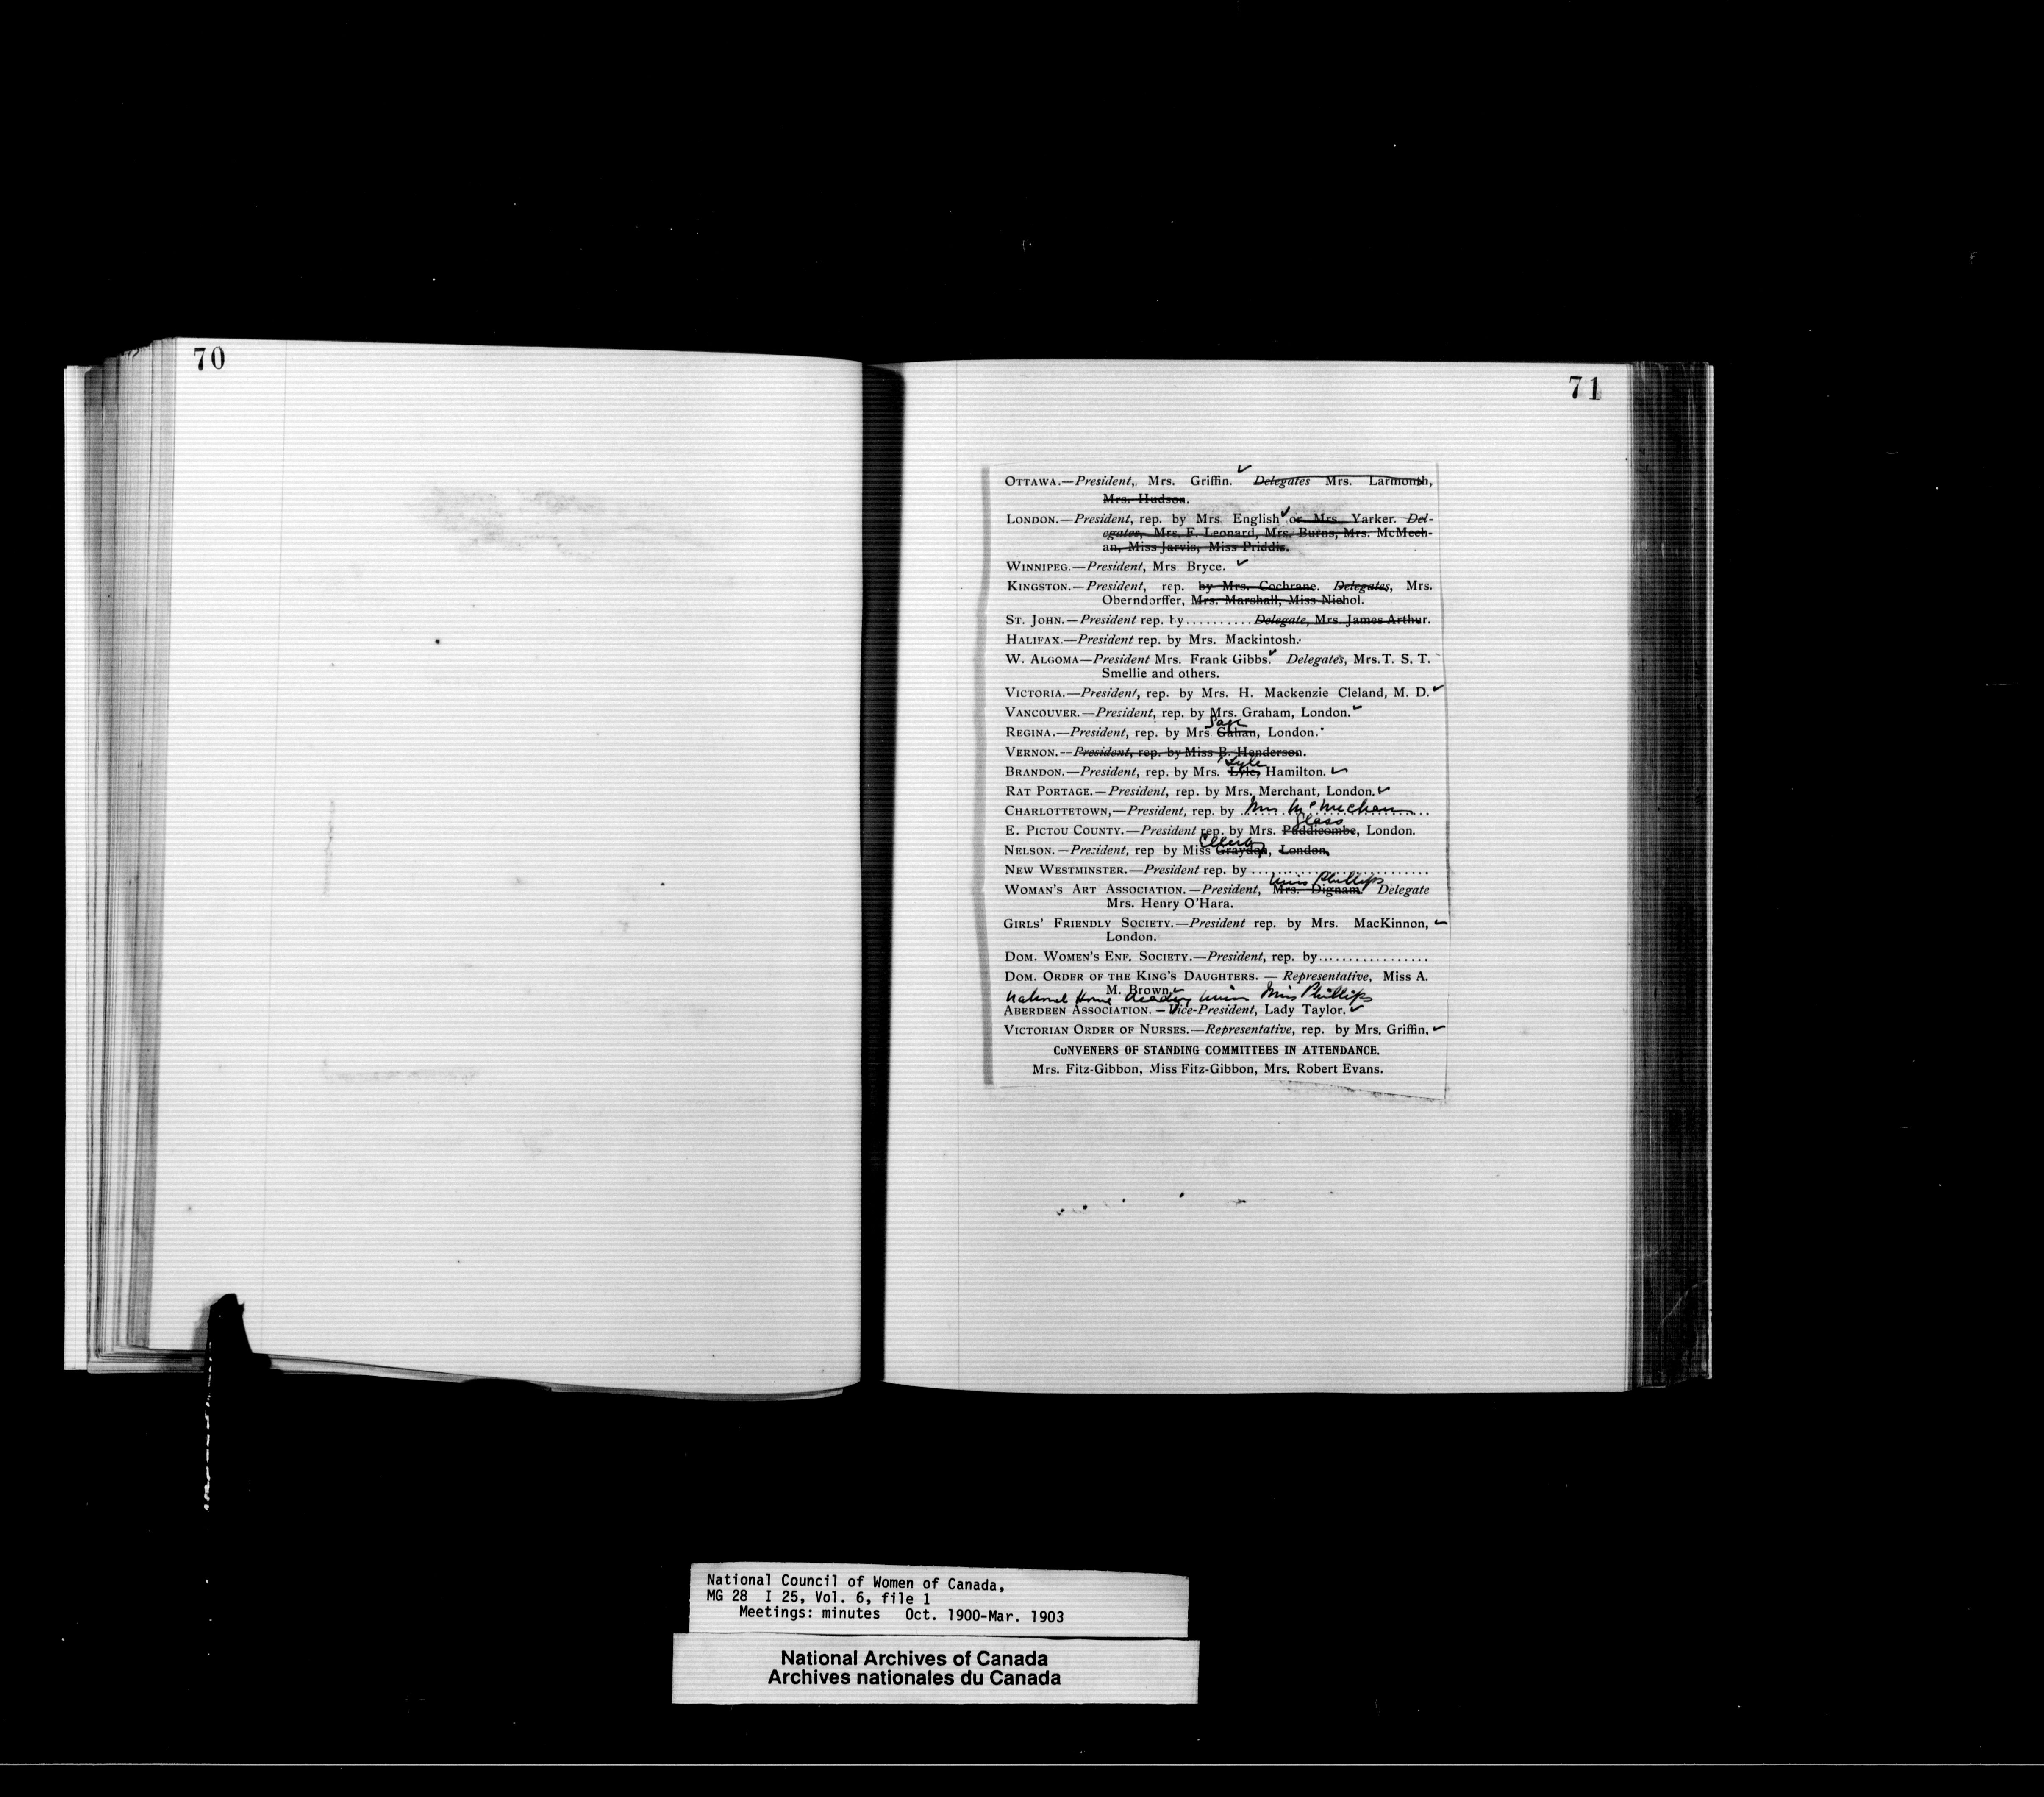 70
71
OTTAWA.—President, Mrs. Griffin. ✓ Delegates Mrs. Larmonth,
Mrs. Hudson.
LONDON.—President, rep. by Mrs. English ✓ or Mrs. Yarker. Del-
egates, Mrs. F. Leonard, Mrs. Burns, Mrs. McMech-
an, Miss Jarvis, Miss Priddis.
WINNIPEG.—President, Mrs. Bryce. ✓
KINGSTON.—President, rep. by Mrs. Cochrane. Delegates, Mrs.
Oberndorffer, Mrs. Marshall, Miss Nichol.
ST. JOHN.—President rep. by.......... Delegate, Mrs. James Arthur.
HALIFAX.—President rep. by Mrs. Mackintosh.
W. ALGOMA—President Mrs. Frank Gibbs. ✓ Delegates, Mrs. T. S. T.
Smellie and others.
VICTORIA.—President, rep. by Mrs. H. Mackenzie Cleland, M. D. ✓
VANCOUVER.—President, rep. by Mrs. Graham, London. ✓
REGINA.—President, rep. by Mrs. Gahan, London.
VERNON.--President, rep. by Miss B. Henderson.
Lyle
BRANDON.—President, rep. by Mrs. Lyle, Hamilton. ✓
RAT PORTAGE.—President, rep. by Mrs. Merchant, London. ✓
CHARLOTTETOWN,—President, rep. by Mrs McMechan
Glass
E. PICTOU COUNTY.—President rep. by Mrs. Puddicombe, London.
NELSON.—President, rep by Miss Graydon, London,
NEW WESTMINSTER.—President rep. by ..............................
Miss Phillips
WOMAN'S ART ASSOCIATION.—President, Mrs. Dignam Delegate
Mrs. Henry O'Hara.
GIRLS' FRIENDLY SOCIETY.—President rep. by Mrs. MacKinnon, ✓
London.
DOM. WOMEN'S ENF. SOCIETY.—President, rep. by.................
DOM. ORDER OF THE KING'S DAUGHTERS. — Representative, Miss A.
M. Brown. ✓
National Home Reading Union Miss Phillips
ABERDEEN ASSOCIATION.—Vice-President, Lady Taylor. ✓
VICTORIAN ORDER OF NURSES.—Representative, rep. by Mrs. Griffin. ✓
CONVENERS OF STANDING COMMITTEES IN ATTENDANCE.
Mrs. Fitz-Gibbon, Miss Fitz-Gibbon, Mrs. Robert Evans.
National Council of Women of Canada,
MG 28 I 25, Vol. 6, file 1
Meetings: minutes Oct. 1900-Mar. 1903
National Archives of Canada
Archives nationales du Canada